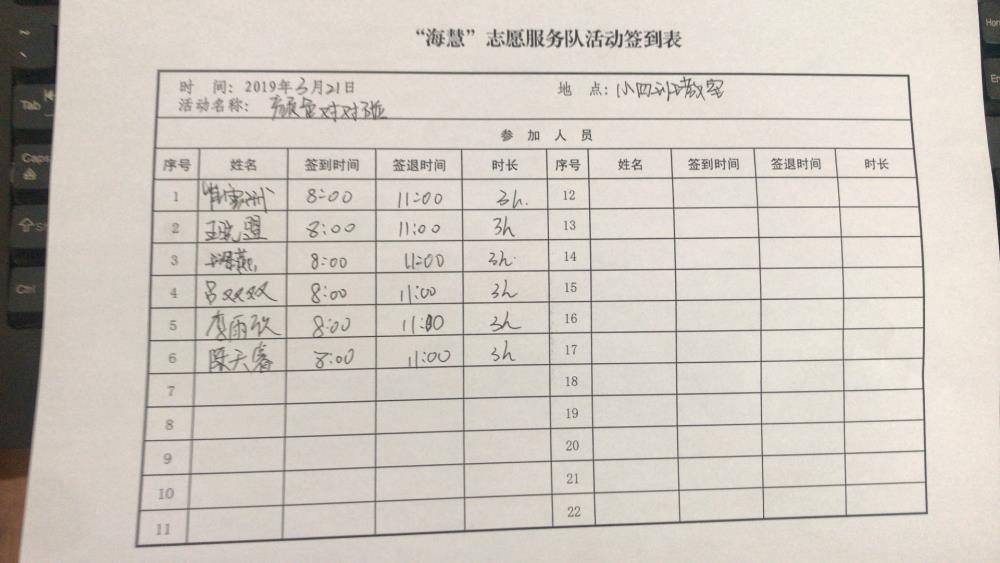 “海慧”志愿服务队活动签到表
时 间：2019年3月21日 地 点：小四班教室
活动名称：颜色对对碰
参 加 人 员
序号 姓名 签到时间 签退时间 时长 序号 姓名 签到时间 签退时间 时长
1 8:00 11:00 3h. 12
2 8:00 11:00 3h 13
3 8:00 11:00 3h 14
4 吕双双 8:00 11:00 3h 15
5 李雨欣 8:00 11:00 3h 16
6 陈天睿 8:00 11:00 3h 17
7 18
8 19
9 20
10 21
11 22
Tab
Caps
Ctrl